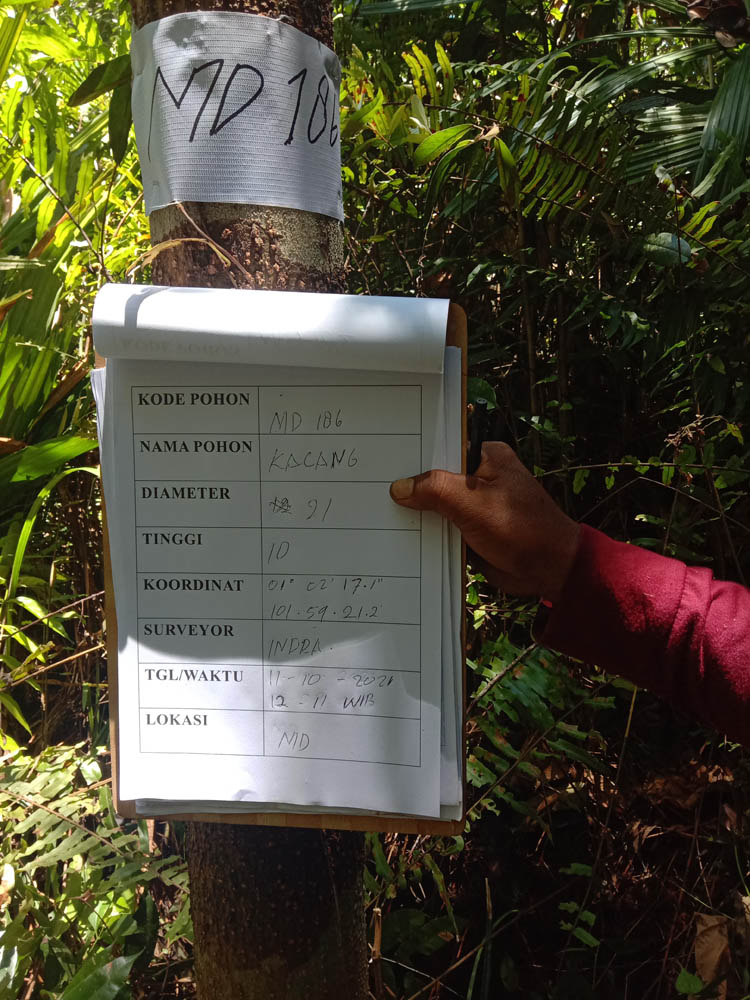 MD 186
KODE POHON MD 186
NAMA POHON KACANG
DIAMETER 91
TINGGI 10
KOORDINAT 01° 02' 17.1"
101.59.21.2
SURVEYOR INDRA.
TGL/WAKTU 11-10-2021
12-11 WIB
LOKASI MD